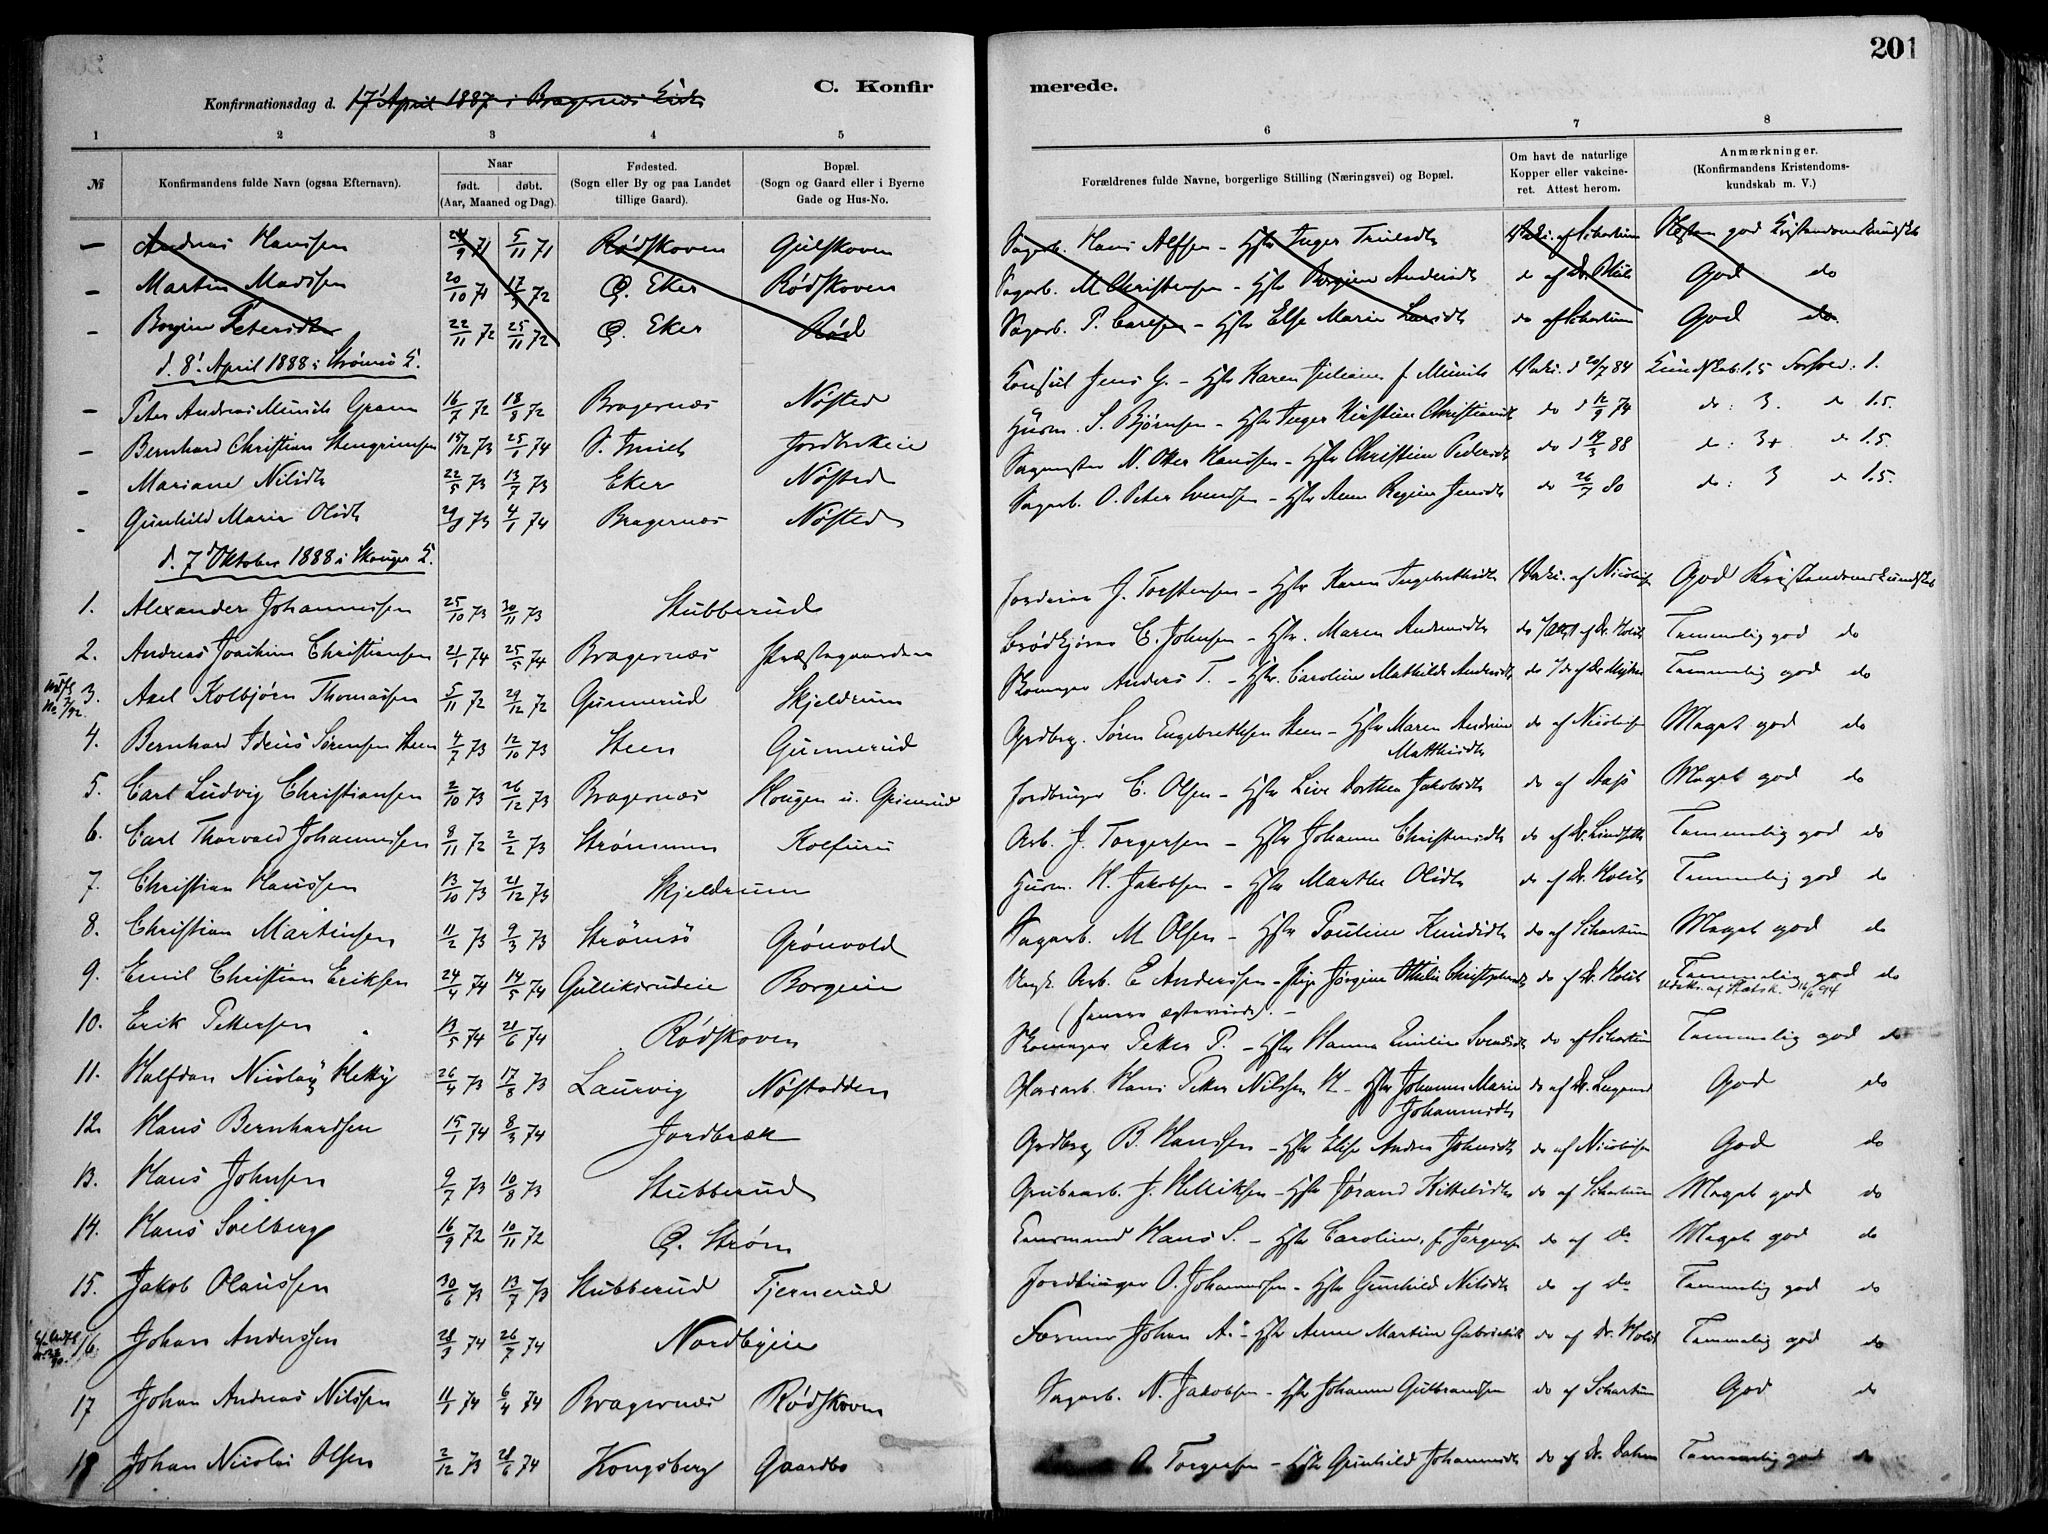 201
C. Konfirmerede.
Konfirmationsdag d. 17' April 1887 i Bragernæs Kirke
1 2 3 4 5 6 7 8
№ Konfirmandens fulde Navn (ogsaa Efternavn). Naar født. døbt. (Aar, Maaned og Dag). Fødested. (Sogn eller By og paa Landet tillige Gaard). Bopæl. (Sogn og Gaard eller i Byerne Gade og Hus-No. Forældrenes fulde Navne, borgerlige Stilling (Næringsvei) og Bopæl. Om havt de naturlige Kopper eller vakcineret. Attest herom. Anmærkninger. (Konfirmandens Kristendomskundskab m. V.)
— Andreas Hanssen 5/11 71 Rødskoven Gulskoven Sagarb. Hans Alfsen – Hstr Inger Trulsdtr Vaks. af Schartum god Kristendomskundskb
— Martin Madssen 20/10 71 Ø. Eker Rødskoven Sagarb. M Christensen – Hstr Borgine Andersdtr do af Dr. God do
— Borgine Petersdtr 22/11 72 25/11 72 Ø. Eker Rød Sagarb. P. Carlsen – Hstr Else Marie Larsdtr do af Schartum God do
d. 8' April 1888 i Strømsø K.
— Peter Andreas Munch Gram 16/7 72 18/8 72 Bragernæs Nøsted Konsul Jens G. – Hstr Karen Juliane f. Munch Vaks. d 20/7 84 Kundskab: 1,5 Forhold: 1.
— Bernhard Christian Stengrimsen 15/12 73 25/1 74 Husm. S. Bjørnsen – Hstr Inger Kirstine Christiansd do d 12/9 74 do: 3. do 1.5.
— Mariane Nilsdtr 22/5 73 13/7 73 Eker Nøsted Sagmester N. Otter Hanssen – Hstr Christine Pedersdtr do d 19/3 88 do: 3+ do 1.5.
— Gunhild Marie Olsdtr 4/1 74 Bragernæs Nøsted Sagarb. O. Peter Svendsen – Hstr Anne Regine Jensdtr do 26/7 80 do: 3 do 1.5.
d. 7d Oktober 1888 i Skouger K.
1. Alexander Johannessen 25/10 73 30/11 73 Stubberud J. Torstensen – Hstr Karen Ingebrethsdtr Vaks. af Nicolaisen God Kristendomskundskb
2. Andreas Joachim Christiansen 21/1 74 25/5 74 Bragernæs Præstegaarden Brødkjører C. Johnsen – Hstr. Maren Andersdtr do af Dr. Holst Temmelig god do
3. Axel Kolbjørn Thomassen 5/11 72 29/12 72 Gunnerud Skjeldrum Skomager Anders T. – Hstr. Caroline Mathilde Andersdtr do Temmelig god do
4. Bernhard Idéus Sørensen Steen 4/7 73 12/10 73 Steen Gunnerud Grdbrg. Søren Engebrethsen Steen – Hstr Maren Andrine Matthisdtr do af Nicolaisen Meget god do
5. Carl Ludvig Christiansen 2/10 73 26/12 73 Bragernæs Hougen u. Grimerud Jordbruger C. Olsen – Hstr Live Dorthea Jakobsdtr do af Aas Meget god do
6. Carl Thorvald Johannessen 8/11 72 2/2 73 Strømmen Kolfuru Arb. J. Torgersen – Hstr Johanne Christensdtr do af Dr. Lindseth Temmelig god do
7. Christian Hanssen 13/10 73 21/12 73 Skjeldrum Husm. H. Jakobsen – Hstr Marthe Olsdtr do af Dr. Holst Temmelig god do
8. Christian Martinsen 11/2 73 9/3 73 Strømsø Grönvold Sagarb. M Olsen – Hstr Pouline Knudsdtr do af Schartum Meget god do
9. Emil Christian Eriksen 24/4 74 14/5 74 Gulliksrudeie Borgeie Ungk. Arb. E Anderssen – Pige Jørgine Othilie Christophersdtr do af Dr. Holst Temmelig god do
(senere ægteviede). –
Udskr. af Statsk. 16/6 94
10. Erik Pettersen 13/5 74 21/6 74 Rødskoven Skomager Petter P. – Hstr Hanna Emilie Svendsdtr do af Schartum Temmelig god do
11. Halfdan Nicolay Hetty 26/4 73 17/8 73 Laurvig Nøstodden Glasarb. Hans Petter Nilssen H. – Hstr Johanne Marie Johannesdtr do af Dr. God do
12. Hans Bernhardsen 15/1 74 8/3 74 Jordbræk Grdbrg B. Hanssen – Hstr Elise Andrea Johnsdtr do af Nicolaisen God do
13. Hans Johnsen 9/7 73 10/8 73 Stubberud Grubearb. J. Helliksen – Hstr Jørand Kittelsdtr do af Schartum Meget god do
14. Hans Svelberg 16/9 72 10/11 72 Ø. Strøm Hans S. – Hstr Caroline, f. Jørgensen do af Do Meget god do
15. Jakob Olaussen 30/6 73 13/7 73 Stubberud Tjernerud Jordbruger O. Johannessen – Hstr Gunhild Nilsdtr do af Do Temmelig god do
16. Johan Anderssen 28/3 74 26/7 74 Nordbyeie Former Johan A. – Hstr Anne Martine Gabrielsdtr do af Dr. Holst Temmelig god do
17 Johan Andreas Nilssen 11/1 74 6/4 74 Bragernæs Rødskoven Sagarb. N. Jakobsen – Hstr Johanne Gulbrandsen do af Schartum God do
18 Johan Nicolai Olsen 2/12 73 28/6 74 Kongsberg Gaardbo O. Torgersen – Hstr Gunhild Johannesdtr do af Dr. Dahm Temmelig god do